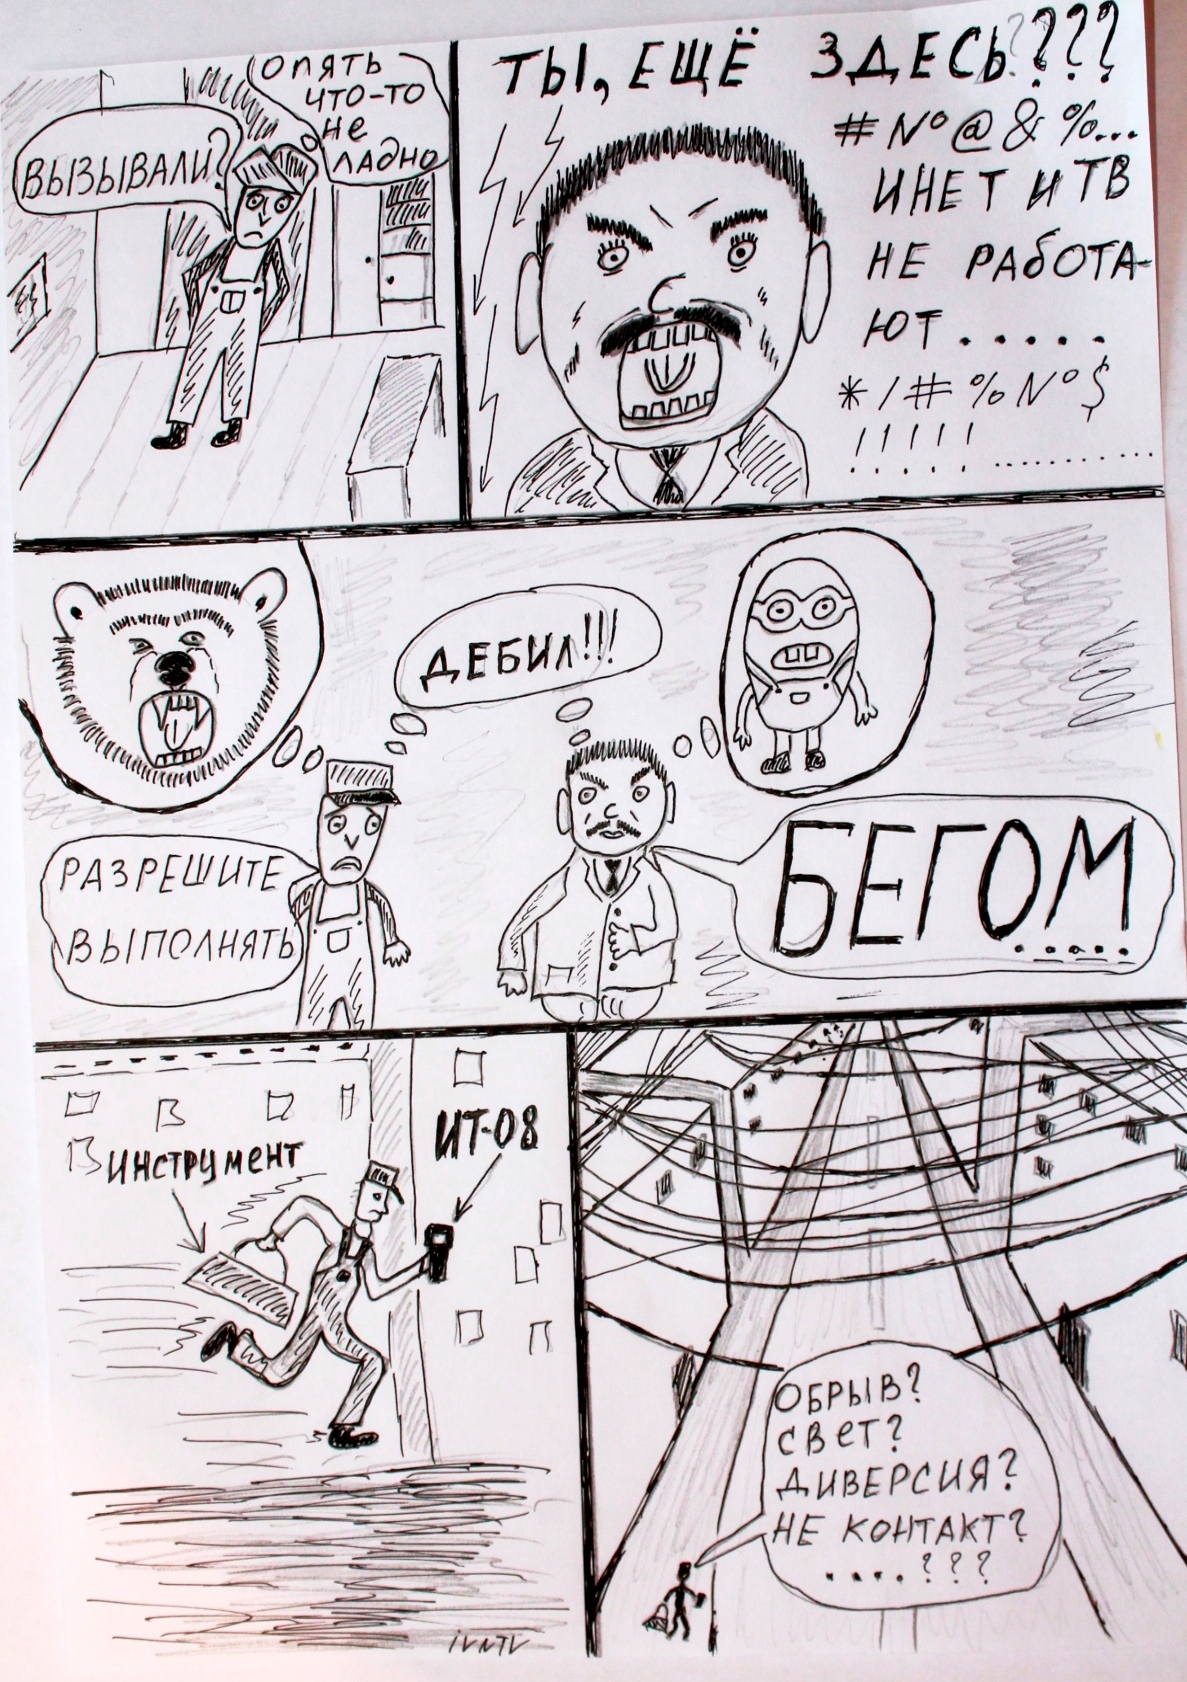 ВЫЗЫВАЛИ?
ОПЯТЬ
ЧТО-ТО
НЕ
ЛАДНО
ТЫ, ЕЩЁ ЗДЕСЬ????
#№@&%...
ИНЕТ И ТВ
НЕ РАБОТА-
ЮТ.....
*/#%№$
!!!!!...........
ДЕБИЛ!!!
РАЗРЕШИТЕ
ВЫПОЛНЯТЬ
БЕГОМ.....
ИНСТРУМЕНТ
ИТ-08
ОБРЫВ?
СВЕТ?
ДИВЕРСИЯ?
НЕ КОНТАКТ?
....???